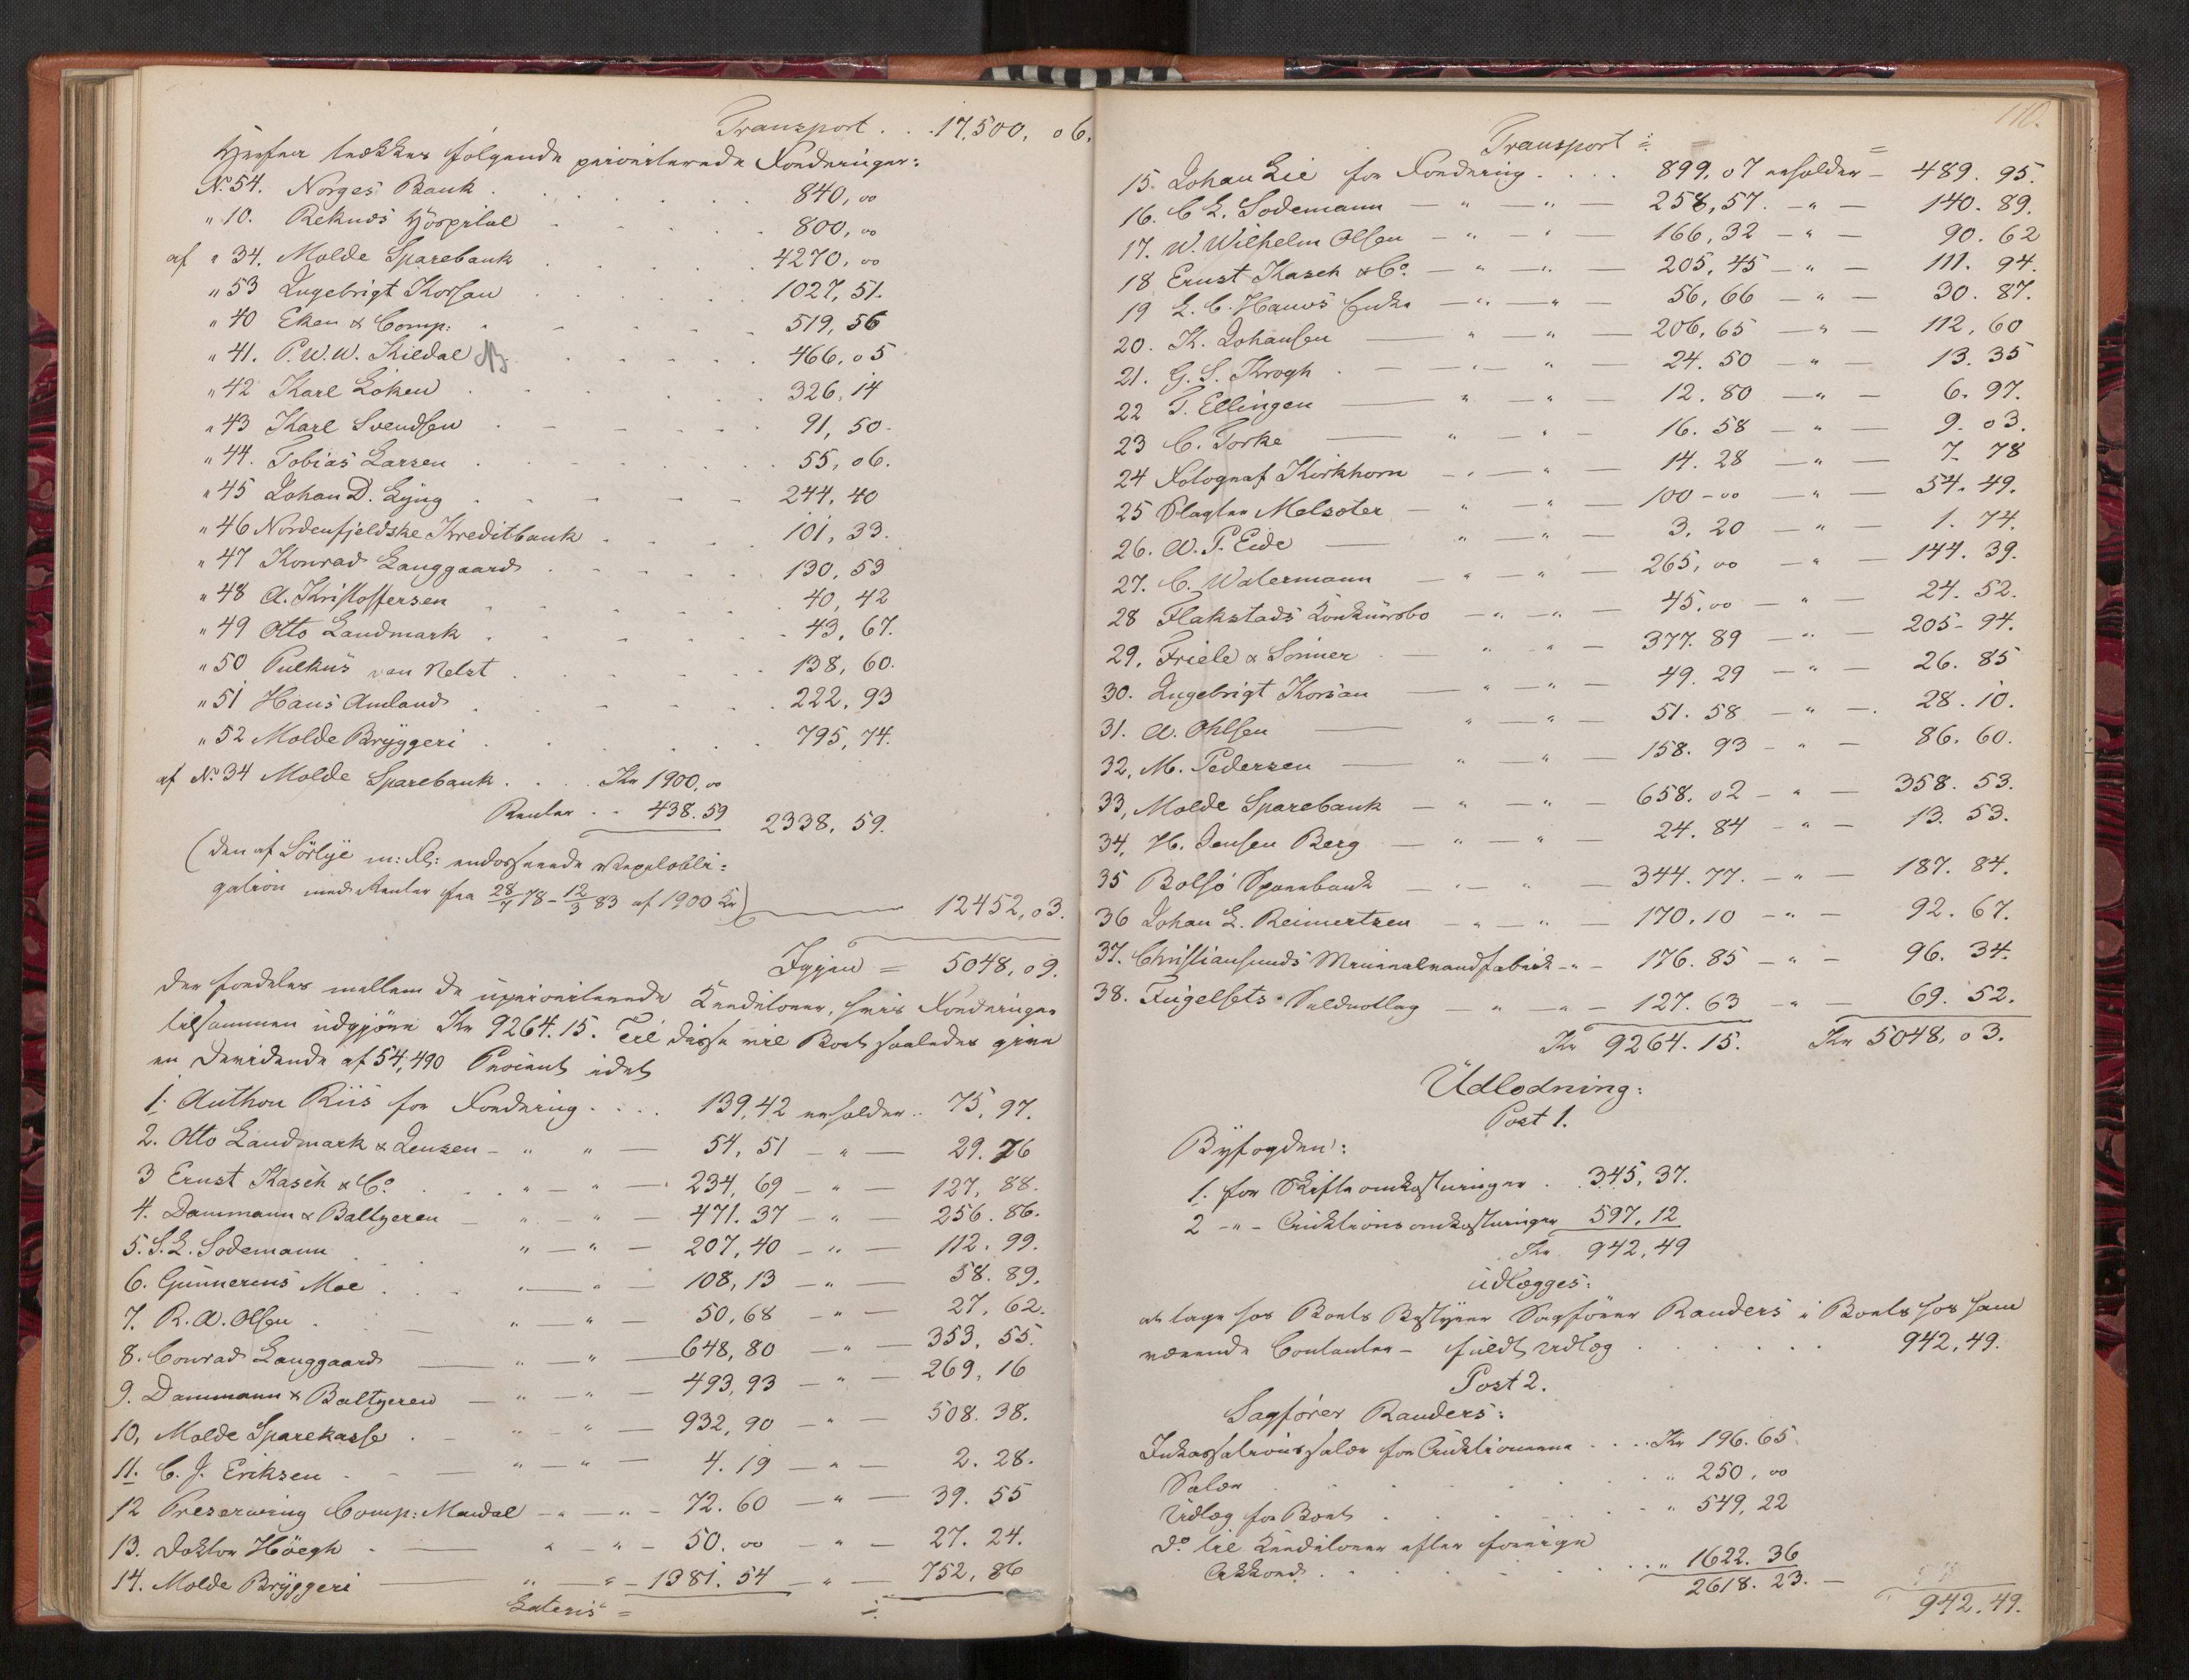 Transport . . . 17,500, 06.
Herfra trækkes følgende prioriterede Fordringer:
No 54. Norges Bank . . . 840,00
" 10. Reknæs Hospital . . . 800,00
af " 34. Molde Sparebank . . . 4270,00
" 53 Ingebrigt Korsan . . . 1027,51.
" 40 Eken & Comp: . . . 519,56
" 41. P. W. W. Kildal . . . 466,05
" 42 Karl Löken . . . 326,14
" 43 Karl Svendsen . . . 91,50.
" 44. Tobias Larsen . . . 55,06.
" 45 Johan D. Lyng . . . 244,40
" 46 Nordenfjeldske Kreditbank . . . 101,33.
" 47 Konrad Langgaard . . . 130,53
" 48 A. Kristoffersen . . . 40,42
" 49 Otto Landmark . . . 43,67.
" 50 van Nelst . . . 138,60.
" 51 Hans Amland . . . 222,93
" 52 Molde Bryggeri . . . 795,74.
af No 34 Molde Sparebank . . . Kr 1900,00
Renter . . 438.59 2338,59.
(den af Sörlye m: Fl: endosserede Vexelobli=
gation med Renter fra 28/7 78 - 12/3 83 af 1900 Kr) 12452,03.
Igjen = 5048,09.
der fordeles mellem de uprioriterede Kreditorer, hvis Fordringer
tilsammen udgjøre Kr 9264.15. Til disse vil Boet saaledes give
en Dividende af 54,490 Procent idet
1. Anthon Riis for Fordring . . . 139,42 erholder . . 75,97.
2. Otto Landmark & Jensen - " " — 54,51 - " — 29.76
3 Ernst Kasch & Co . . . " - " — 234,69 - " — 127,88.
4. Dammann & Baltzersen — " - " — 471.37 - " — 256.86.
5. S. L. Sodemann . " — " — 207,40 - " — 112.99.
6. Gunnerius Moe . . . " — " — 108,13 - " — 58.89.
7. R. A. Olsen . — " — " — 50,68 - " — 27,62.
8. Conrad Langgaard — " — " — 648,80 — " — 353,55.
9. Dammann & Baltzersen — " — " — 493,93 — " — 269,16
10, Molde Sparekasse . — " " — 932,90 — " — 508.38.
11. C. J. Eriksen - - — " — " — 4.19 — " — 2.28.
12 Preserving Comp: Mandal - " — " - 72.60 — " — 39.55
13. Doktor Höegh - — " — " - 50.00 — " — 27.24.
14. Molde Bryggeri — " — " - 1381.54 — " — 752,86
Lateris =
110.
Transport =
15. Johan Lie for Fordring . . . . 899,07 erholder - 489.95.
16. C L. Sodemann — " — " — 258,57. - " — 140.89.
17. W. Wilhelm Olsen — " — " — 166,32 - " — 90.62
18 Ernst Kasch & Co. — " — " — 205,45 — " — 111.94.
19 L. C. Hanøs Enke — " — " — 56,66 — " — 30.87.
20. K. Johansen — " — " — 206,65 — " — 112,60
21. G. S. Krogh . — " " — 24.50 — " — 13.35
22 T. Ellingen — " — " — 12.80 — " — 6.97.
23 C. Torke — " — " - 16.58 — " — 9.03.
24 Fotograf Kirkhorn — " — " — 14.28 — " — 7.78
25 Slagter Melsæter — " — " — 100-00 — " — 54.49.
26. A. P. Eide — " — " — 3.20 — " — 1.74.
27. C. Watermann — " — " — 265,00 — " — 144.39.
28 Flakstads Konkursbo — " — " — 45.00 — " — 24.52.
29, Friele & Sönner . — " " — 377.89 — " — 205-94.
30. Ingebrigt Korsan — " — " — 49.29 — " — 26.85
31. A. Ohlsen — " — " — 51.58 — " — 28.10.
32, M. Pedersen — " — " — 158.93 - " — 86.60.
33, Molde Sparebank — " — " — 658.02 - " — 358.53.
34, H. Jensen Berg — " — " — 24.84 - " — 13.53.
35 Bolsö Sparebank — " — " — 344.77. - " — 187.84.
36 Johan L. Reimertsen — " — " — 170,10 - " — 92.67.
37. Christiansunds Mineralvandfabrik - " - 176.85 - " — 96.34.
38. Fugelsets Teldnotlag — " — " — 127.63 - " — 69.52.
Kr 9264.15. Kr 5048,03.
Udlodning:
Post 1.
Byfogden:
1. for Skifteomkostninger . 345,37.
2 - " - Auktionsomkostninger 597,12
Kr. 942,49
udlægges:
at tage hos Boets Bestyrer Sagfører Randers i Boets hos ham
værende Contanter - fuldt Udlæg . . . 942,49.
Post 2.
Sagfører Randers:
Inkassationssalær for Auktionerne . . . . Kr 196.65.
Salær . . . " 250,00
Udlæg for Boet . . . " 549,22
Do til Kreditorer efter forrige
Akkord . . . " 1622.36
2618.23. —
942.49.